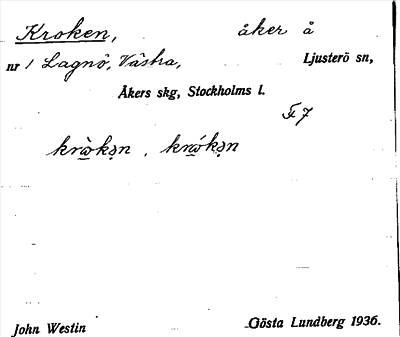 Kroken, åker å
nr 1 Lagnö, Västra, Ljusterö sn,
Åkers skg, Stockholms l.
F 7
krὼkən, krώkən
John Westin Gösta Lundberg 1936.